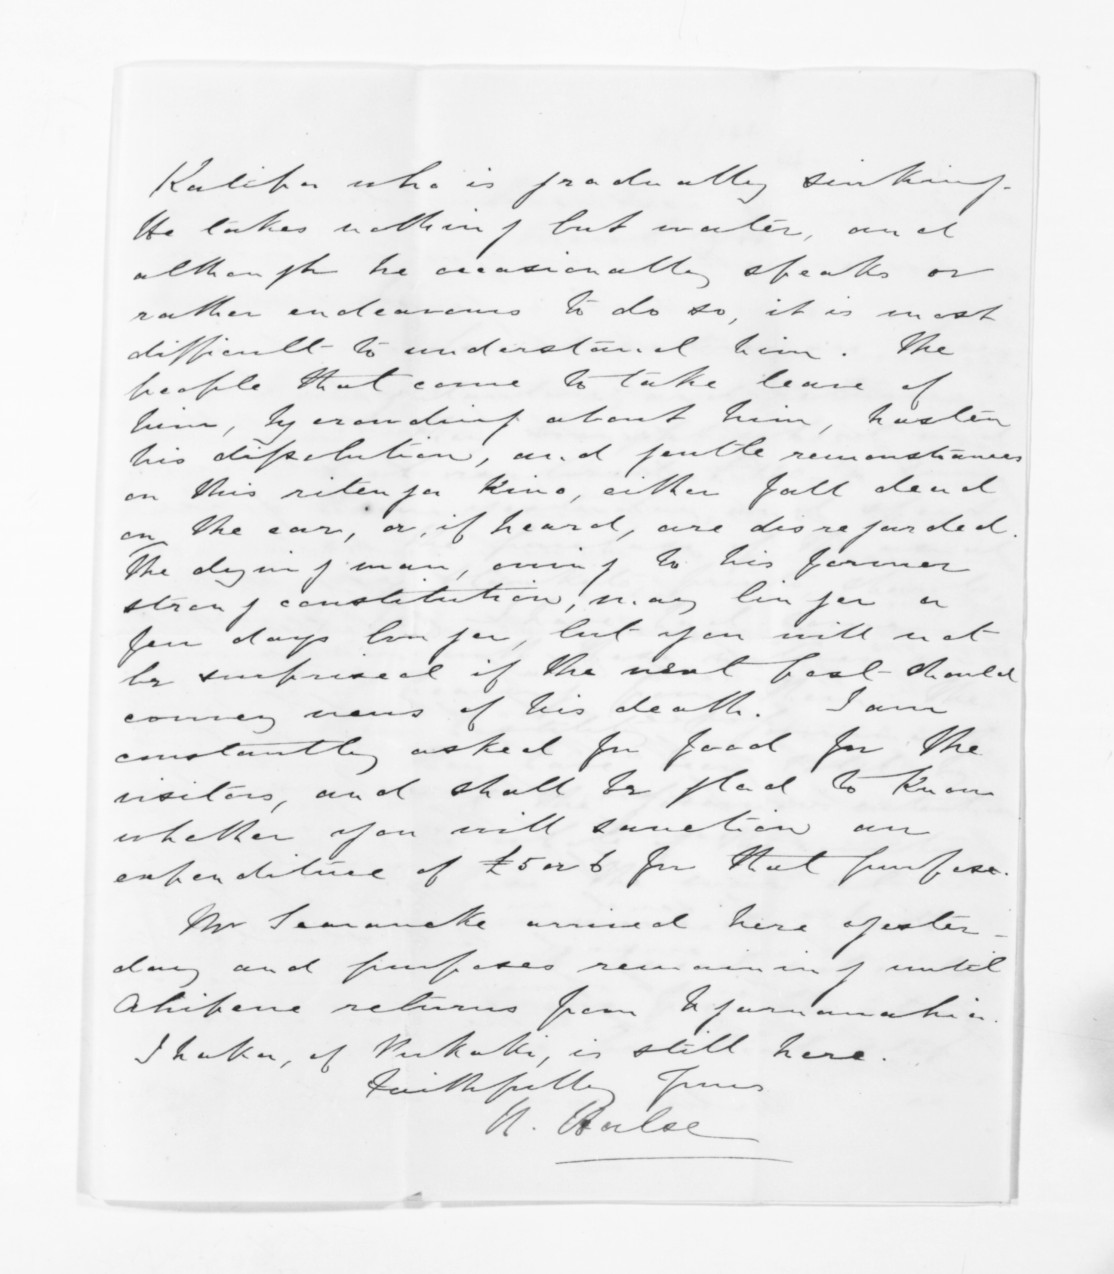 Katipa who is gradually sinking.
He takes nothing but water, and
although he occasionally speaks or
rather endeavours to do so, it is most
difficult to understand him. The
people that come to take leave of
him, by crowding about him, hasten
his dissolution, and gentle remonstrances
on this ritenga kino, either fall dead
on the ear, or, if heard, are disregarded.
The dying man, owing to his former
strong constitution, may linger a
few days longer, but you will not
be surprised if the next post should
convey news of his death. I am
constantly asked for food for the
visitors, and shall be glad to know
whether you will sanction an
expenditure of £5 or 6 for that purpose.
Mr Searancke arrived here yester-
day and purposes remaining until
Ahipene returns from Ngaruawahia.
Ihaka, of Pukaki, is still here.
Faithfully yours
N. Halse